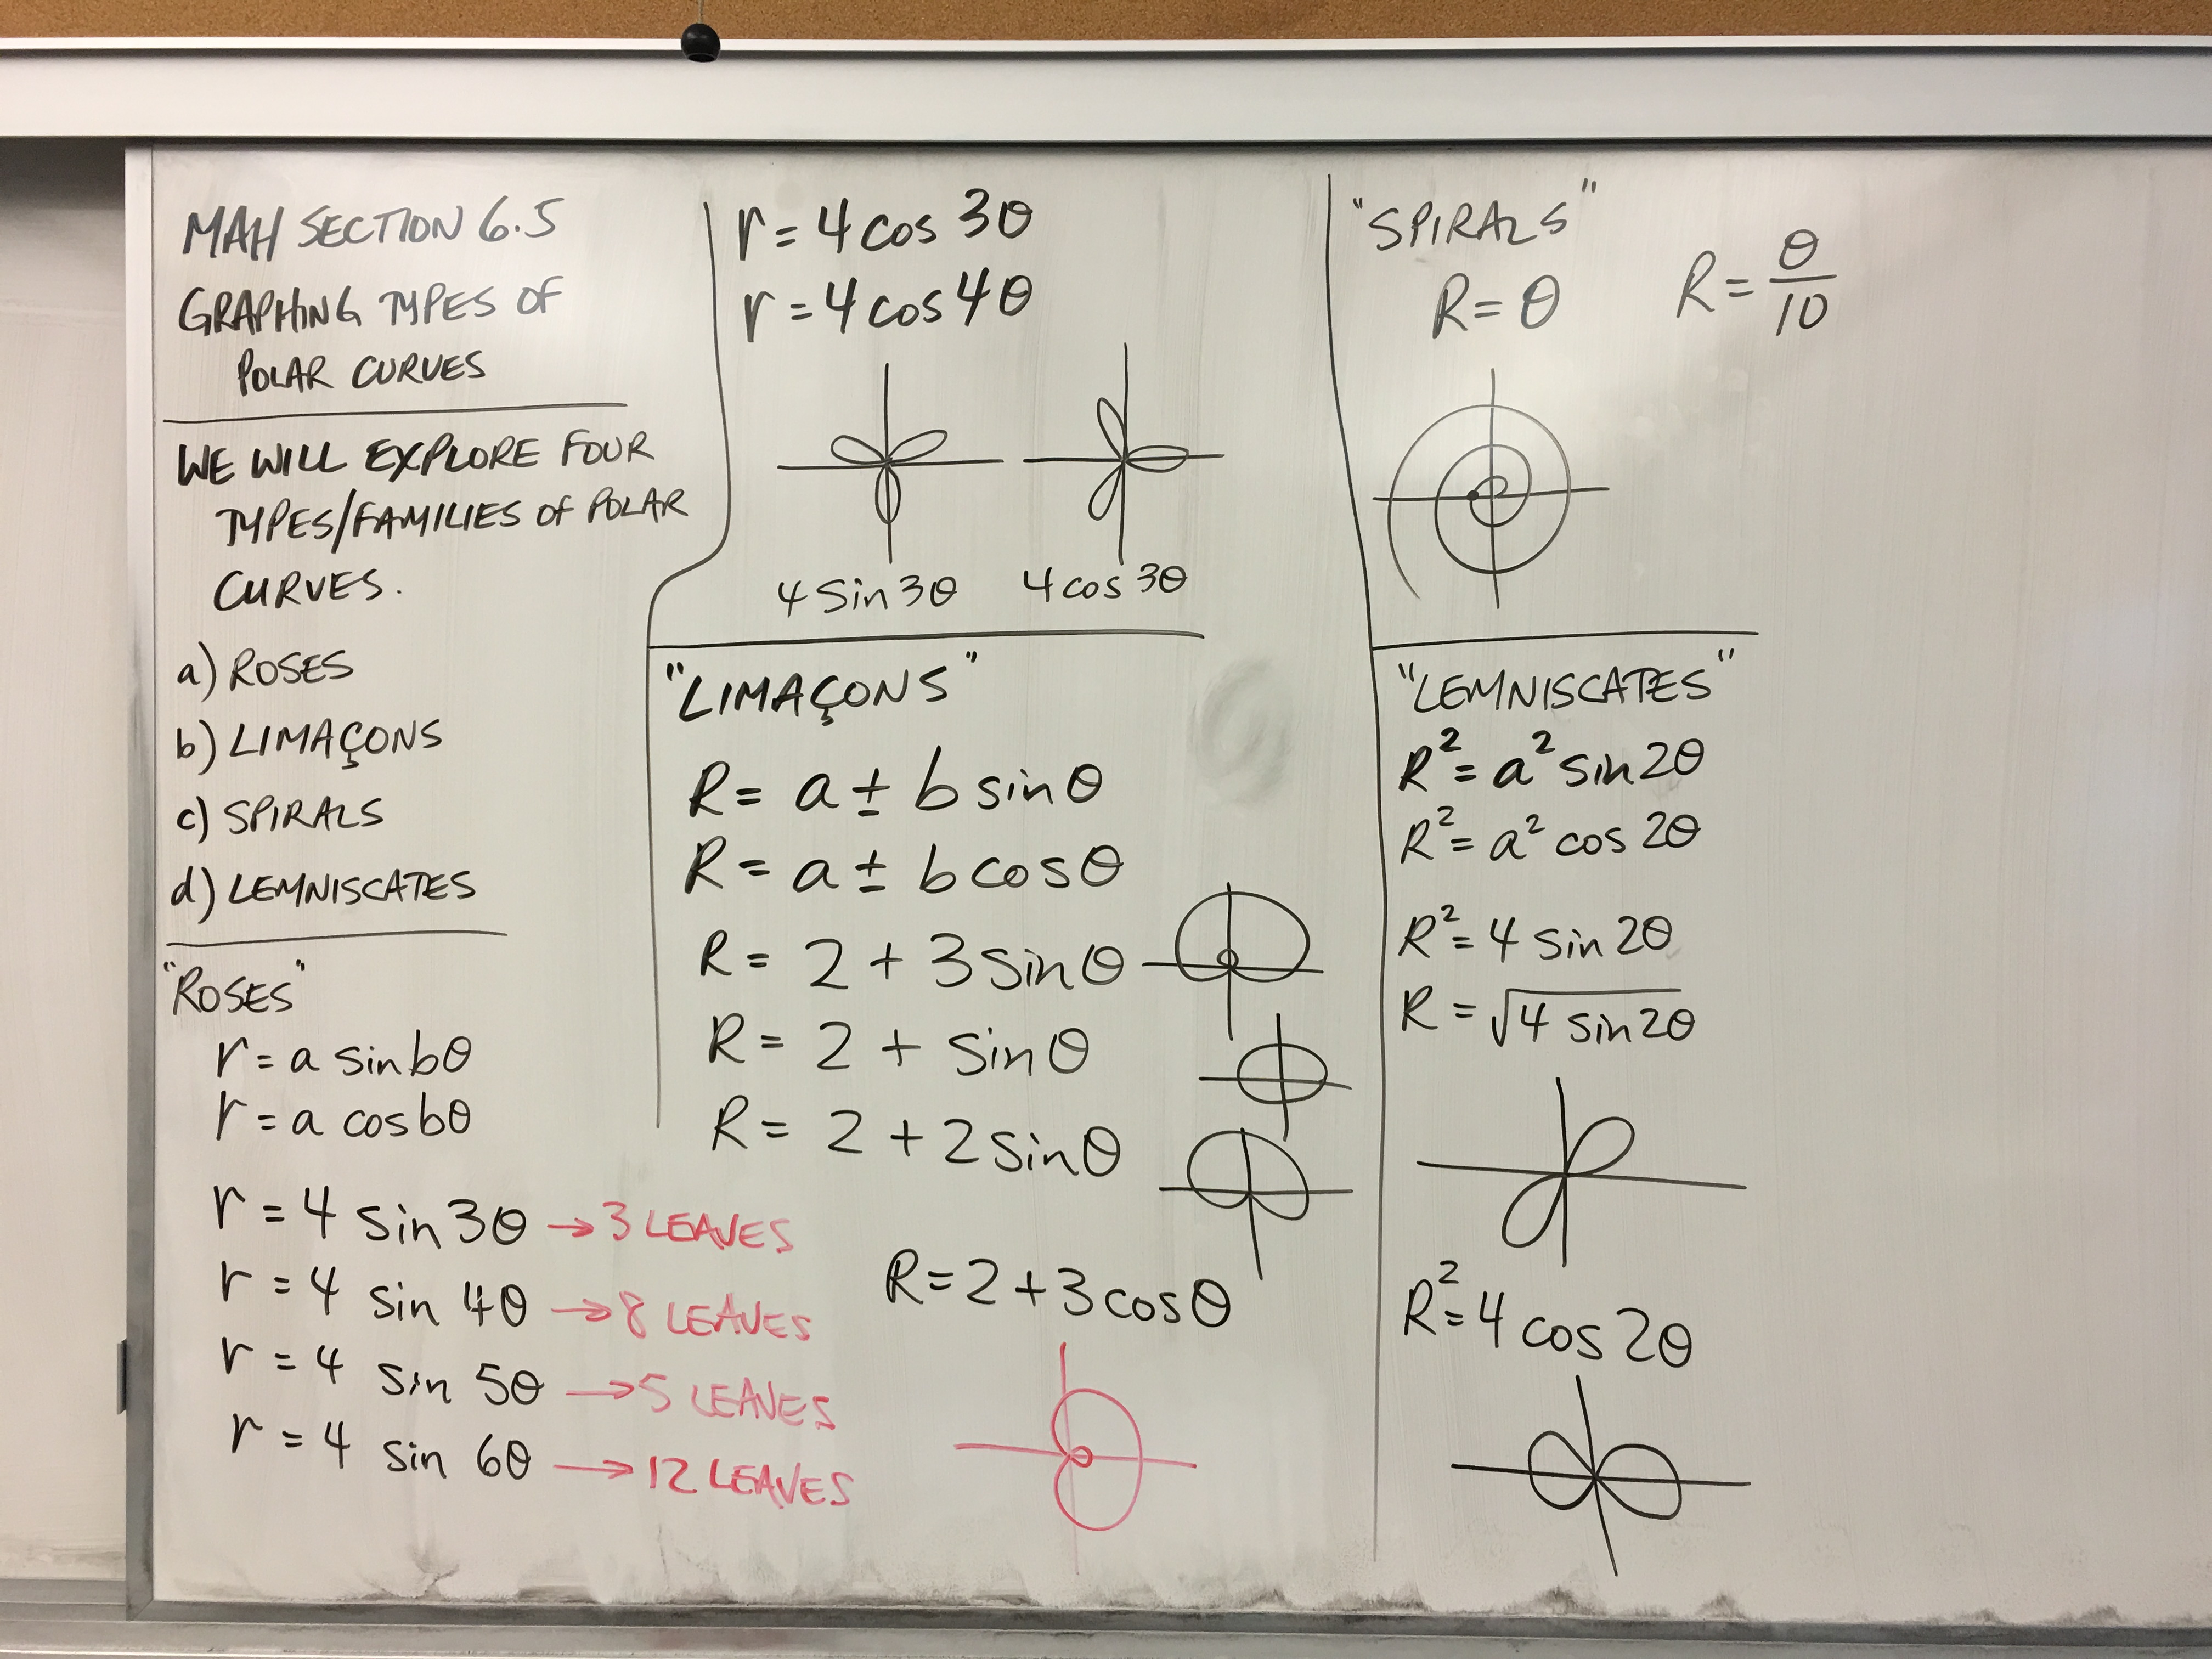 MAH SECTION 6.5
GRAPHING TYPES OF
POLAR CURVES
WE WILL EXPLORE FOUR
TYPES/FAMILIES OF POLAR
CURVES.
a) ROSES
b) LIMAÇONS
c) SPIRALS
d) LEMNISCATES
"ROSES"
r = a sin bθ
r = a cos bθ
r = 4 sin 3θ → 3 LEAVES
r = 4 sin 4θ → 8 LEAVES
r = 4 sin 5θ → 5 LEAVES
r = 4 sin 6θ → 12 LEAVES
r = 4 cos 3θ
r = 4 cos 4θ
4 sin 3θ 4 cos 3θ
"LIMAÇONS"
R = a ± b sin θ
R = a ± b cos θ
R = 2 + 3 sin θ
R = 2 + sin θ
R = 2 + 2 sin θ
R = 2 + 3 cos θ
"SPIRALS"
R = θ R = θ/10
"LEMNISCATES"
R² = a² sin 2θ
R² = a² cos 2θ
R² = 4 sin 2θ
R = √4 sin 2θ
R² = 4 cos 2θ